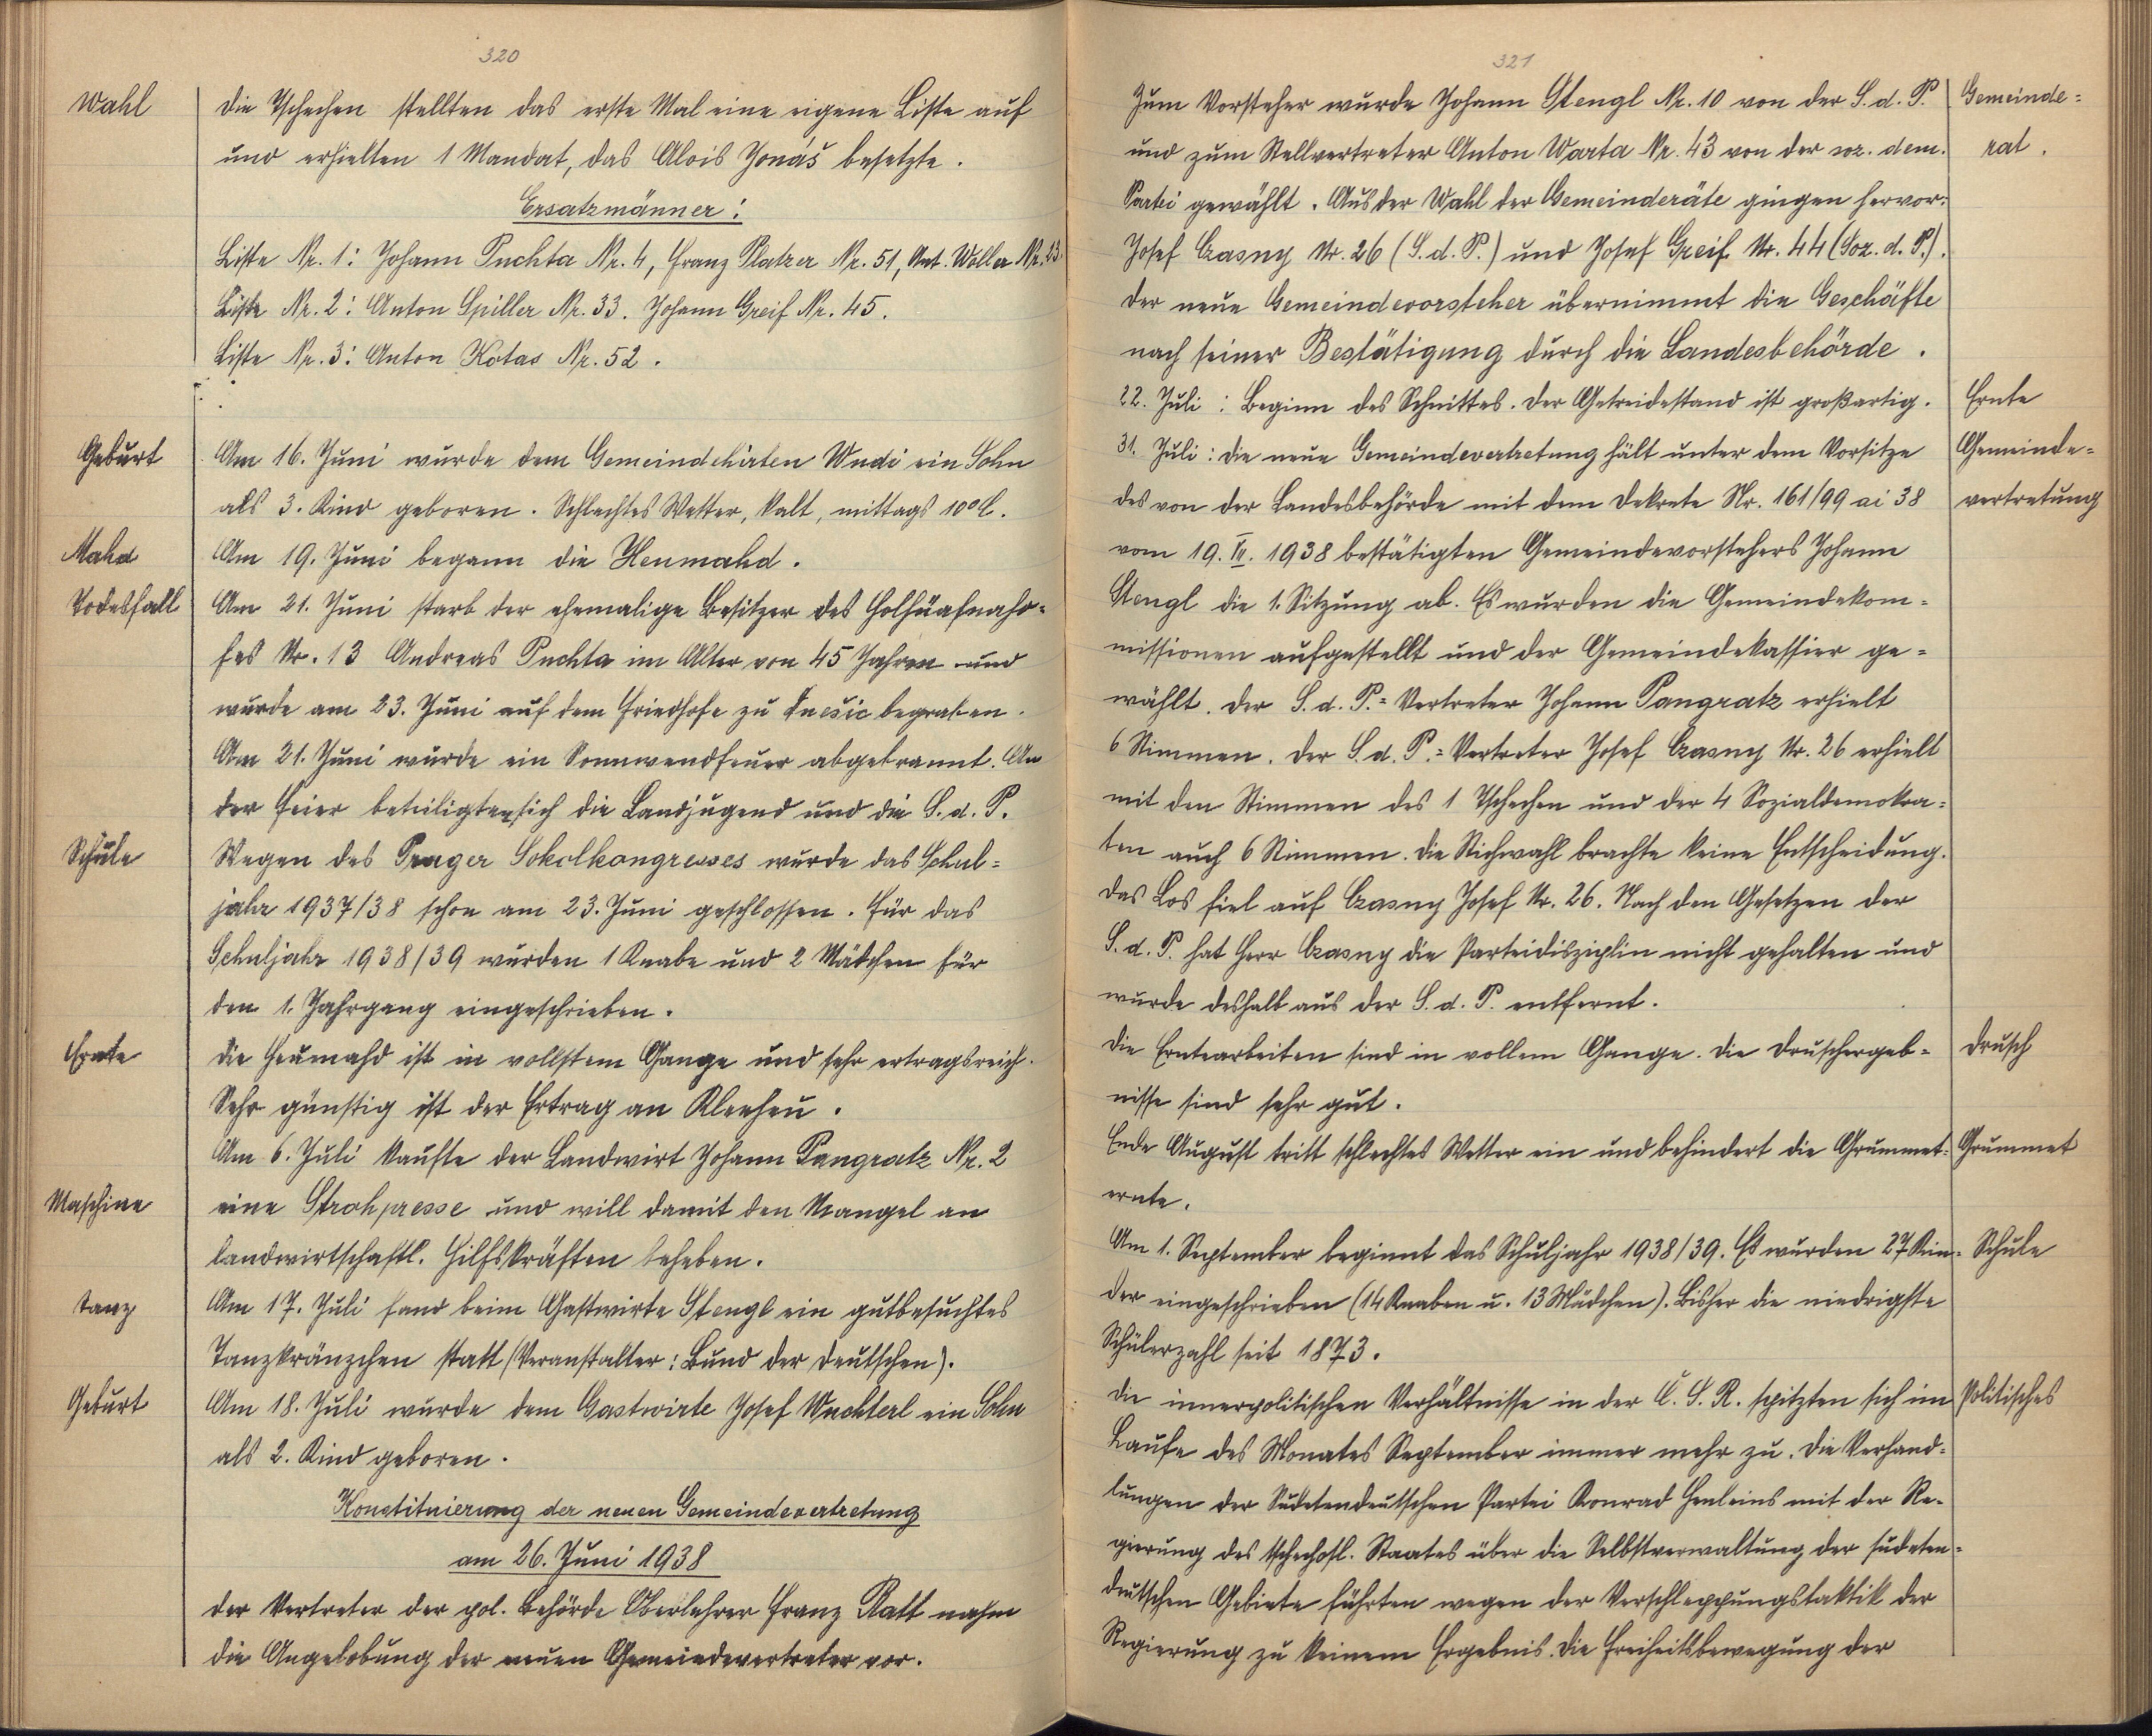 320
Wahl
Die Tschechen stellten das erste Mal eine eigene Liste auf
und erhielten 1 Mandat, das Alois Jonáš besetzte.
Ersatzmänner:
Liste Nr. 1: Johann Puchta Nr. 4, Franz Platzer Nr. 51, Ant. Weller Nr. 23.
Liste Nr. 2: Anton Spiller Nr. 33. Johann Greif Nr. 45.
Liste Nr. 3: Anton Kotas Nr. 52.
Geburt
Am 16. Juni wurde dem Gemeindehirten Wudi ein Sohn
als 3. Kind geboren. Schlechtes Wetter, kalt, mittags 10° C.
Mahd
Am 19. Juni begann die Heumahd.
Todesfall
Am 21. Juni starb der ehemalige Besitzer des
fes Nr. 13 Andreas Puchta im Alter von 45 Jahren und
wurde am 23. Juni auf dem Friedhofe zu Knešic begraben.
Am 21. Juni wurde ein Sonnwendfeuer abgebrannt. An
der Feier beteiligten sich die Landjugend und die S. d. P.
Schule
Wegen des Prager Sokolkongresses wurde das Schul=
jahr 1937/38 schon am 23. Juni geschlossen. Für das
Schuljahr 1938/39 wurden 1 Knabe und 2 Mädchen für
den 1. Jahrgang eingeschrieben.
Ernte
Die Heumahd ist in vollstem Gange und sehr ertragsreich.
Sehr günstig ist der Ertrag an Kleeheu.
Am 6. Juli kaufte der Landwirt Johann Pangratz Nr. 2
Maschine
eine Strohpresse und will damit den Mangel an
landwirtschaftl. Hilfskräften beheben.
Tanz
Am 17. Juli fand beim Gastwirte Stengl ein gutbesuchtes
Tanzkränzchen statt (Veranstalter: Bund der Deutschen).
Geburt
Am 18. Juli wurde dem Gastwirte Josef Wachterl ein Sohn
als 2. Kind geboren.
Konstituierung der neuen Gemeindevertretung
am 26. Juni 1938
Der Vertreter der pol. Behörde Oberlehrer Franz Ratt nahm
die Angelobung der neuen Gemeindevertreter vor.
321
Zum Vorsteher wurde Johann Stengl Nr. 10 von der S. d. P.
Gemeinde=
und zum Stellvertreter Anton Warta Nr. 43 von der soz. dem.
rat.
Partei gewählt. Aus der Wahl der Gemeinderäte gingen hervor:
Josef Czasny Nr. 26 (S. d. P.) und Josef Greif Nr. 44 (Soz. d. P.).
Der neue Gemeindevorsteher übernimmt die Geschäfte
nach seiner Bestätigung durch die Landesbehörde.
22. Juli: Beginn des Schnittes. Der Getreidestand ist großartig.
Ernte
31. Juli: Die neue Gemeindevertretung hält unter dem Vorsitze
Gemeinde=
des von der Landesbehörde mit dem Dekrete Nr. 161/99 ai 38
vertretung
vom 19. 1938 bestätigten Gemeindevorstehers Johann
Stengl die 1. Sitzung ab. Es wurden die Gemeindekom=
missionen aufgestellt und der Gemeindekassier ge=
wählt. Der S. d. P.=Vertreter Johann Pangratz erhielt
6 Stimmen. Der S. d. P.=Vertreter Josef Czasny Nr. 26 erhielt
mit den Stimmen des 1 Tschechen und der 4 Sozialdemokra=
ten auch 6 Stimmen. Die Stichwahl brachte keine Entscheidung.
Das Los fiel auf Czasny Josef Nr. 26. Nach den Gesetzen der
S. d. P. hat Herr Czasny die Parteidisziplin nicht gehalten und
wurde deshalb aus der S. d. P. entfernt.
Die Erntearbeiten sind in vollem Gange. Die Druschergeb=
Drusch
nisse sind sehr gut.
Ende August tritt schlechtes Wetter ein und behindert die Grummet=
Grummet
ernte.
Am 1. September beginnt das Schuljahr 1938/39. Es wurden 27 Kin=
Schule
der eingeschrieben (14 Knaben u. 13 Mädchen). Bisher die niedrigste
Schülerzahl seit 1873.
Die innerpolitischen Verhältnisse in der Č. S. R. spitzten sich im
Politisches
Laufe des Monates September immer mehr zu. Die Verhand=
lungen der Sudetendeutschen Partei Konrad Henleins mit der Re=
gierung des tschechosl. Staates über die Selbstverwaltung der sudeten=
deutschen Gebiete führten wegen der Verschleppungstaktik der
Regierung zu keinem Ergebnis. Die Freiheitsbewegung der